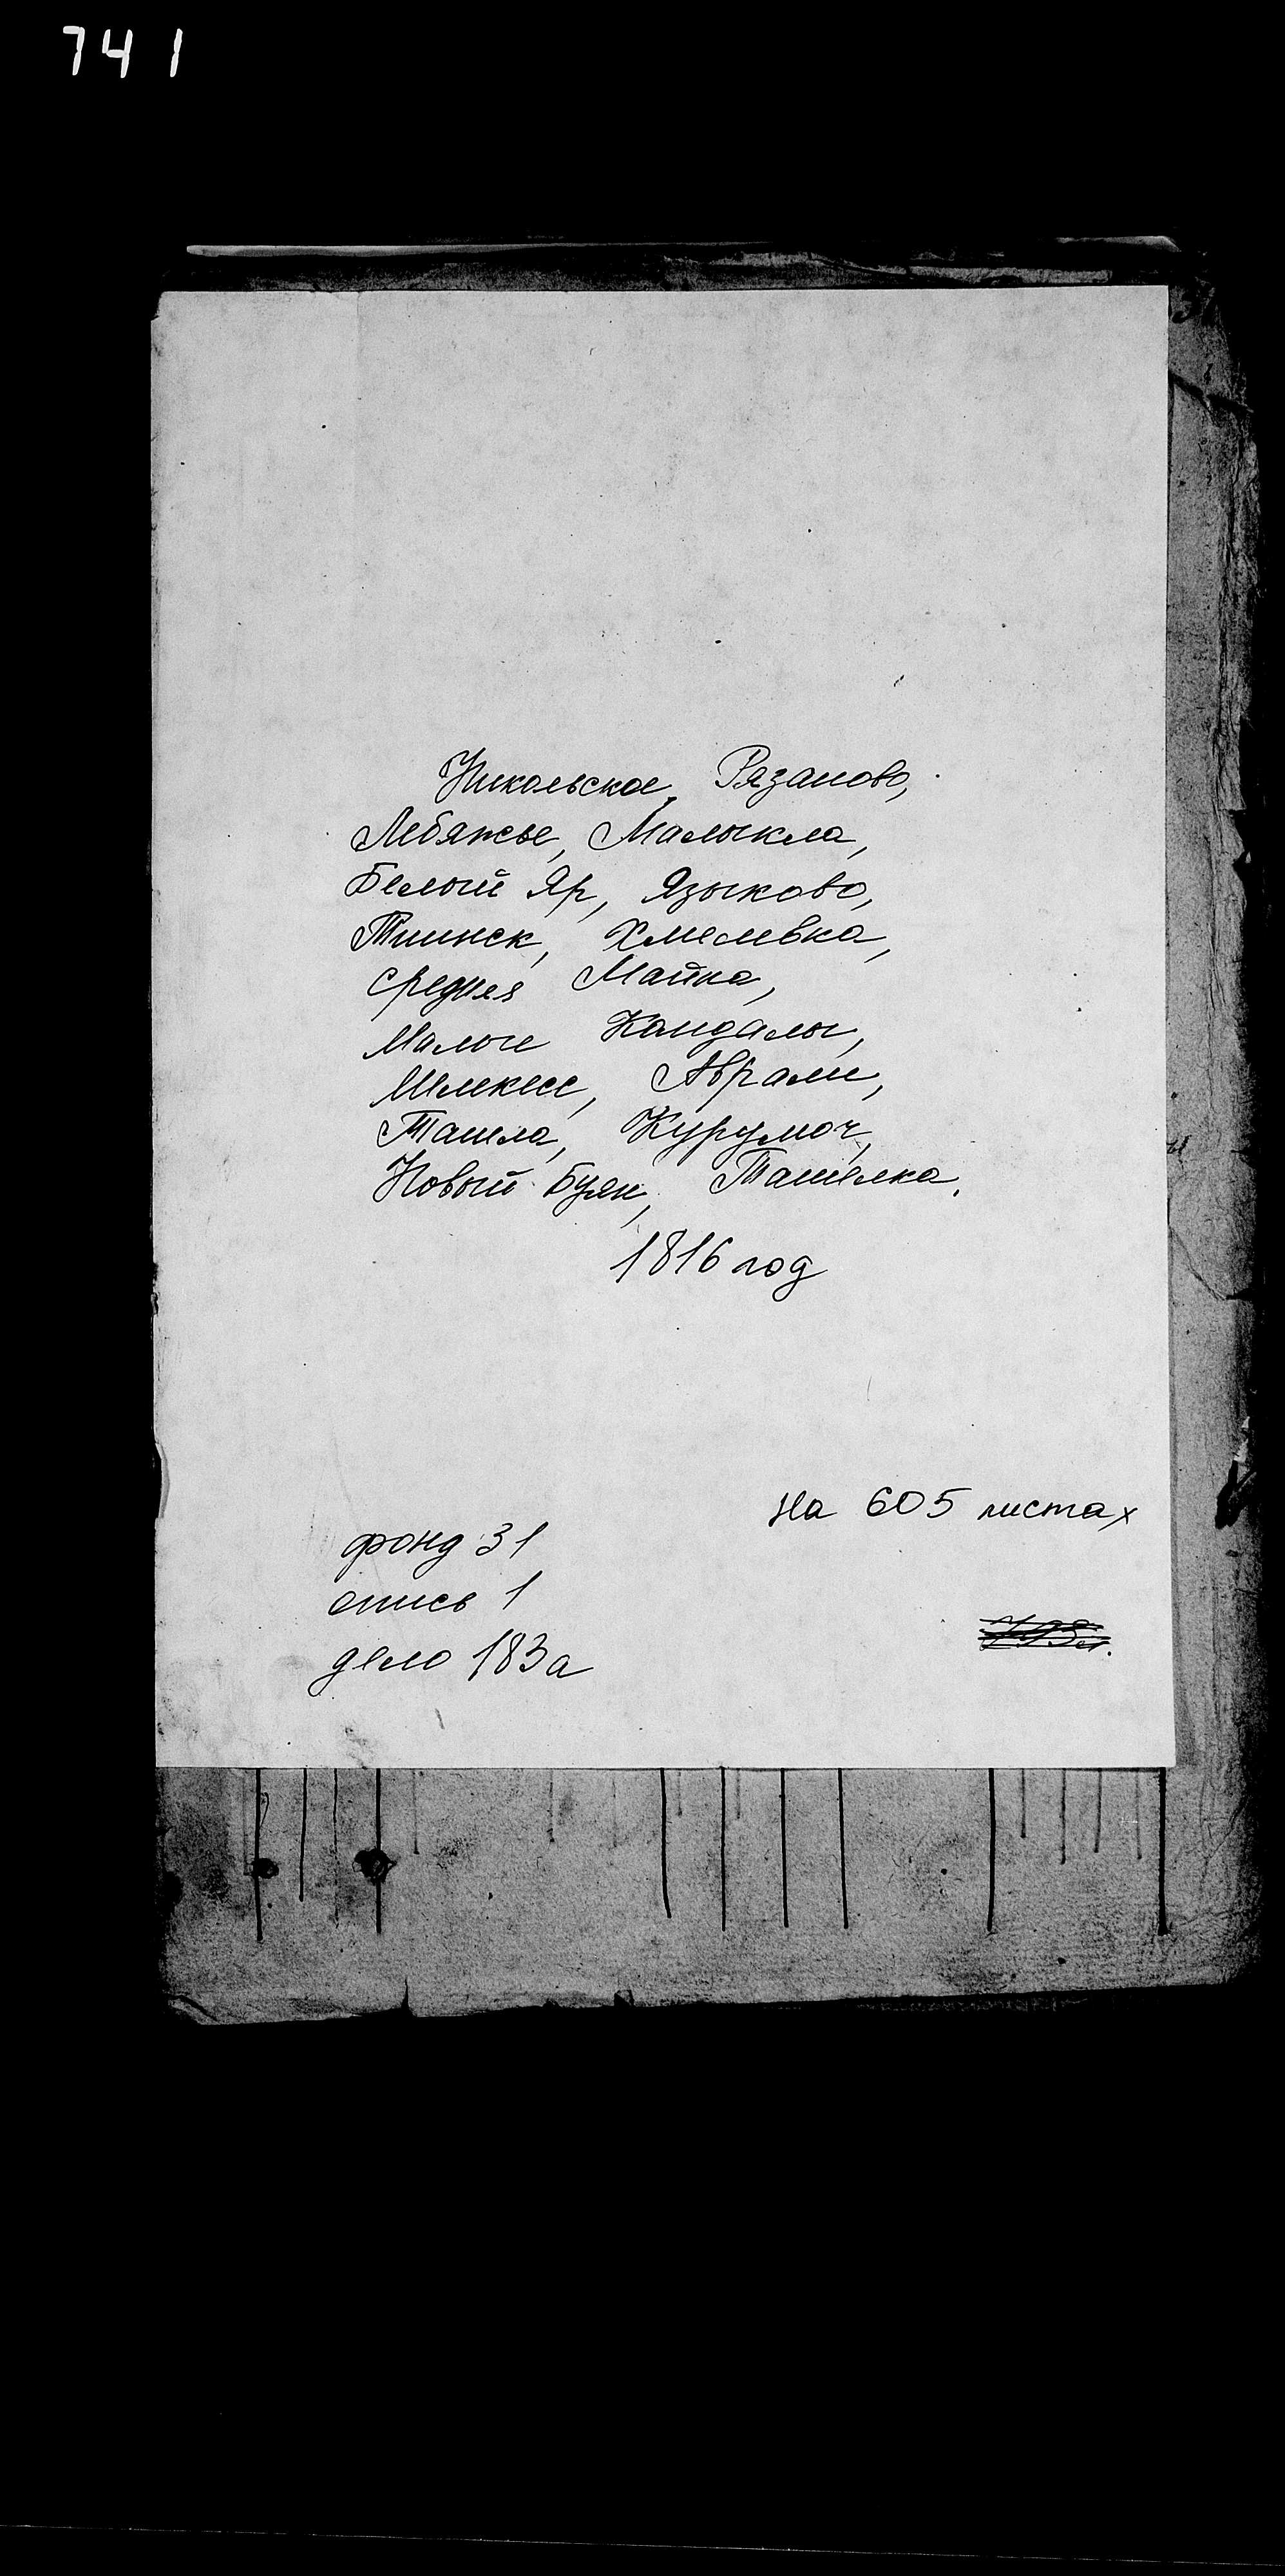 741
Никольское, Рязаново,
Лебяжье, Малыкла,
Белый Яр, Языково,
Тиинск, Хмелевка,
Средняя Майна,
Малые Кандалы,
Мелекесс, Аврали,
Ташла, Курумоч,
Новый Буян, Ташелка.
1816 год
На 605 листах
фонд 31
опись 1
дело 183а